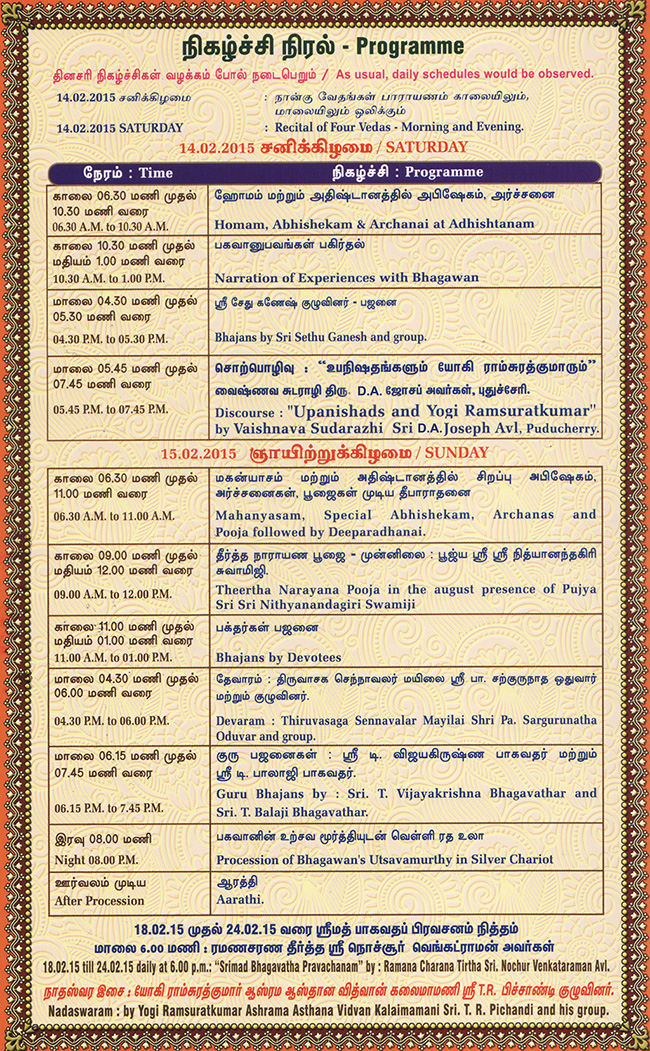 நிகழ்ச்சி நிரல் - Programme
தினசரி நிகழ்ச்சிகள் வழக்கம் போல் நடைபெறும் / As usual, daily schedules would be observed.
14.02.2015 சனிக்கிழமை : நான்கு வேதங்கள் பாராயணம் காலையிலும்,
மாலையிலும் ஒலிக்கும்
14.02.2015 SATURDAY : Recital of Four Vedas - Morning and Evening.
14.02.2015 சனிக்கிழமை / SATURDAY
நேரம் : Time நிகழ்ச்சி : Programme
காலை 06.30 மணி முதல்
10.30 மணி வரை
06.30 A.M. to 10.30 A.M.
ஹோமம் மற்றும் அதிஷ்டானத்தில் அபிஷேகம், அர்ச்சனை
Homam, Abhishekam & Archanai at Adhishtanam
காலை 10.30 மணி முதல்
மதியம் 1.00 மணி வரை
10.30 A.M. to 1.00 P.M.
பகவானுபவங்கள் பகிர்தல்
Narration of Experiences with Bhagawan
மாலை 04.30 மணி முதல்
05.30 மணி வரை
04.30 P.M. to 05.30 P.M.
ஸ்ரீ சேது கணேஷ் குழுவினர் - பஜனை
Bhajans by Sri Sethu Ganesh and group.
மாலை 05.45 மணி முதல்
07.45 மணி வரை
05.45 P.M. to 07.45 P.M.
சொற்பொழிவு : “உபநிஷதங்களும் யோகி ராம்சுரத்குமாரும்”
வைஷ்ணவ சுடராழி திரு. D.A. ஜோசப் அவர்கள், புதுச்சேரி.
Discourse : "Upanishads and Yogi Ramsuratkumar"
by Vaishnava Sudarazhi Sri D.A.Joseph Avl, Puducherry.
15.02.2015 ஞாயிற்றுக்கிழமை / SUNDAY
காலை 06.30 மணி முதல்
11.00 மணி வரை
06.30 A.M. to 11.00 A.M.
மகன்யாசம் மற்றும் அதிஷ்டானத்தில் சிறப்பு அபிஷேகம்,
அர்ச்சனைகள், பூஜைகள் முடிய தீபாராதனை
Mahanyasam, Special Abhishekam, Archanas and
Pooja followed by Deeparadhanai.
காலை 09.00 மணி முதல்
மதியம் 12.00 மணி வரை
09.00 A.M. to 12.00 P.M.
தீர்த்த நாராயண பூஜை - முன்னிலை : பூஜ்ய ஸ்ரீ ஸ்ரீ நித்யானந்தகிரி
சுவாமிஜி.
Theertha Narayana Pooja in the august presence of Pujya
Sri Sri Nithyanandagiri Swamiji
காலை 11.00 மணி முதல்
மதியம் 01.00 மணி வரை
11.00 A.M. to 01.00 P.M.
பக்தர்கள் பஜனை
Bhajans by Devotees
மாலை 04.30 மணி முதல்
06.00 மணி வரை
04.30 P.M. to 06.00 P.M.
தேவாரம் : திருவாசக செந்நாவலர் மயிலை ஸ்ரீ பா. சற்குருநாத ஒதுவார்
மற்றும் குழுவினர்.
Devaram : Thiruvasaga Sennavalar Mayilai Shri Pa. Sargurunatha
Oduvar and group.
மாலை 06.15 மணி முதல்
07.45 மணி வரை
06.15 P.M. to 7.45 P.M.
குரு பஜனைகள் : ஸ்ரீ டி. விஜயகிருஷ்ண பாகவதர் மற்றும்
ஸ்ரீ டி. பாலாஜி பாகவதர்.
Guru Bhajans by : Sri. T. Vijayakrishna Bhagavathar and
Sri. T. Balaji Bhagavathar.
இரவு 08.00 மணி
Night 08.00 P.M.
பகவானின் உற்சவ மூர்த்தியுடன் வெள்ளி ரத உலா
Procession of Bhagawan's Utsavamurthy in Silver Chariot
ஊர்வலம் முடிய
After Procession
ஆரத்தி
Aarathi.
18.02.15 முதல் 24.02.15 வரை ஸ்ரீமத் பாகவதப் பிரவசனம் நித்தம்
மாலை 6.00 மணி : ரமணசரண தீர்த்த ஸ்ரீ நொச்சூர் வெங்கட்ராமன் அவர்கள்
18.02.15 till 24.02.15 daily at 6.00 p.m.: “Srimad Bhagavatha Pravachanam” by : Ramana Charana Tirtha Sri. Nochur Venkataraman Avl.
நாதஸ்வர இசை : யோகி ராம்சுரத்குமார் ஆஸ்ரம ஆஸ்தான வித்வான் கலைமாமணி ஸ்ரீ T.R. பிச்சாண்டி குழுவினர்.
Nadaswaram : by Yogi Ramsuratkumar Ashrama Asthana Vidvan Kalaimamani Sri. T. R. Pichandi and his group.